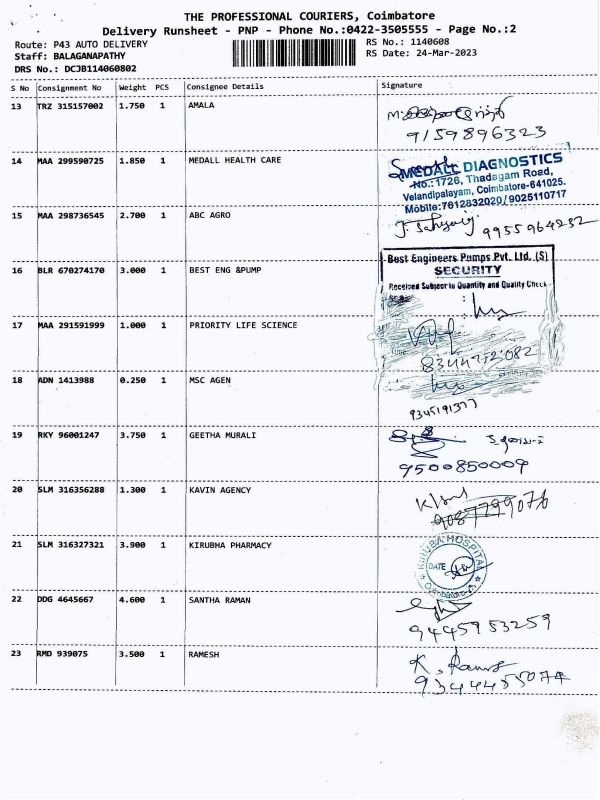 THE PROFESSIONAL COURIERS, Coimbatore
Delivery Runsheet - PNP - Phone No.:0422-3505555 - Page No.:2
Route: P43 AUTO DELIVERY
RS No.: 1140608
Staff: BALAGANAPATHY
RS Date: 24-Mar-2023
DRS No.: DCJB114060802
S No Consignment No Weight PCS Consignee Details Signature
13 TRZ 315157002 1.750 1 AMALA
9159896323
14 MAA 299590725 1.850 1 MEDALL HEALTH CARE
MEDALL DIAGNOSTICS
No.:1726, Thadagam Road,
Velandipalayam, Coimbatore-641025.
Mobile:7612832020/9025110717
15 MAA 298736545 2.700 1 ABC AGRO
9955964232
16 BLR 670274170 3.000 1 BEST ENG &PUMP
Best Engineers Pumps Pvt. Ltd. (S)
SECURITY
Received Subject to Quantity and Quality Check
17 MAA 291591999 1.000 1 PRIORITY LIFE SCIENCE
8344212082
18 ADN 1413988 0.250 1 MSC AGEN
9345191377
19 RKY 96001247 3.750 1 GEETHA MURALI
9500850009
20 SLM 316356288 1.300 1 KAVIN AGENCY
9087799076
21 SLM 316327321 3.900 1 KIRUBHA PHARMACY
KIRUBA HOSPITAL
DATE
Coimbatore
22 DDG 4645667 4.600 1 SANTHA RAMAN
9445953259
23 RMD 939075 3.500 1 RAMESH
K. Rames
9344455074